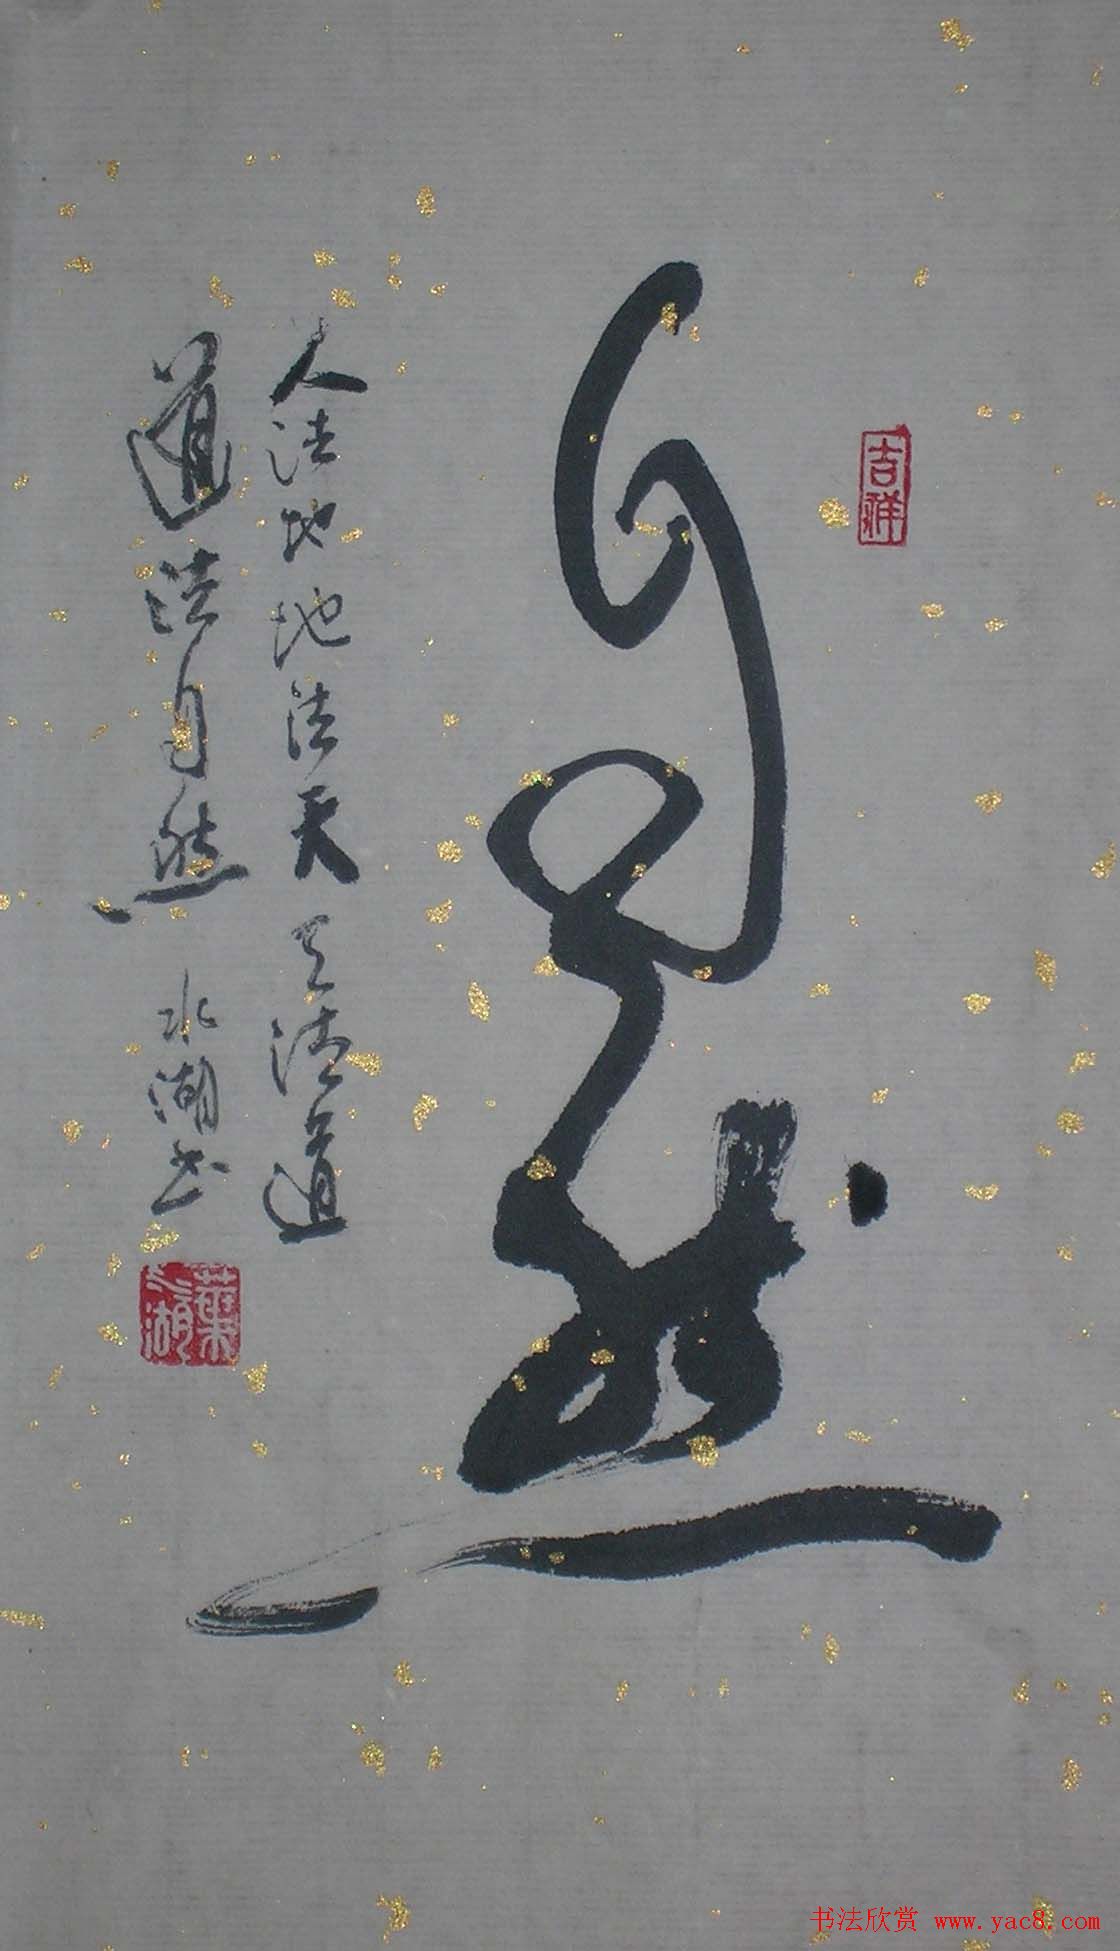 自然
吉祥
人法地地法天天法道
道法自然 水湖书
葉水湖
书法欣赏 www.yac8.com